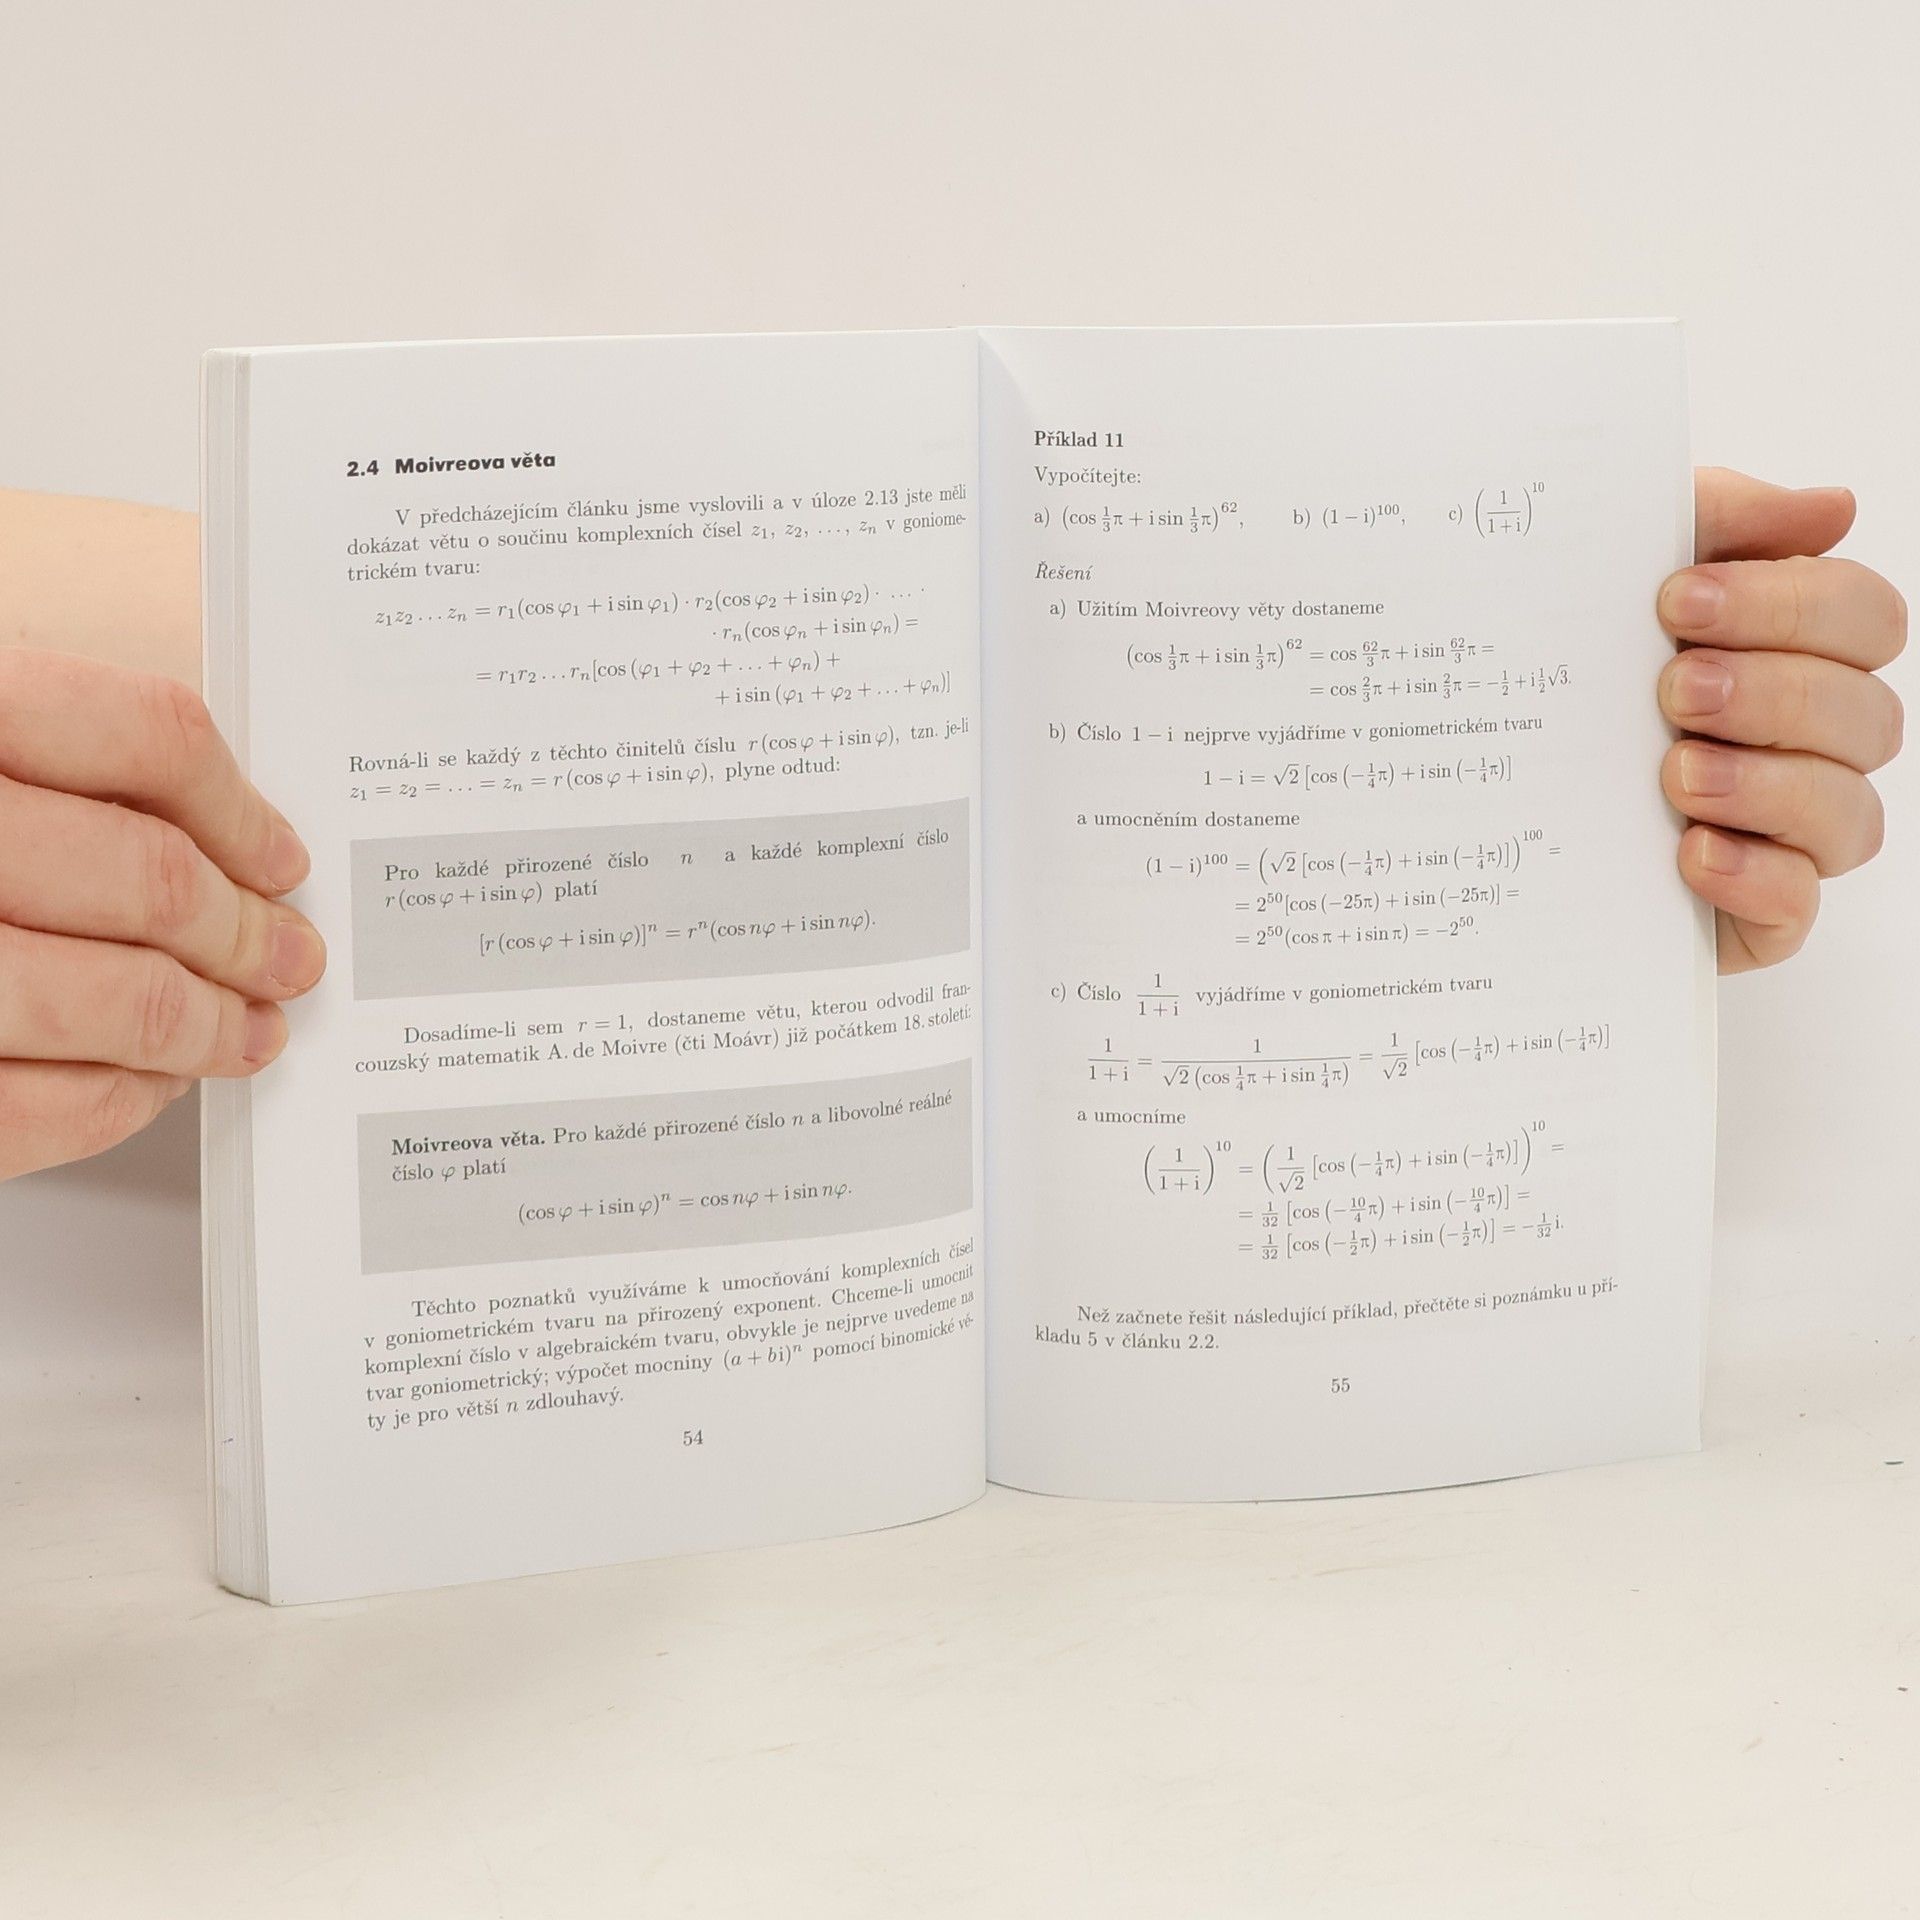 2.4 Moivreova věta
V předcházejícím článku jsme vyslovili a v úloze 2.13 jste měli
dokázat větu o součinu komplexních čísel z₁, z₂, ..., zₙ v goniome-
trickém tvaru:
z₁z₂...zₙ = r₁(cos φ₁ + i sin φ₁) · r₂(cos φ₂ + i sin φ₂) · ... ·
· rₙ(cos φₙ + i sin φₙ) =
= r₁r₂...rₙ[cos (φ₁ + φ₂ + ... + φₙ) +
+ i sin (φ₁ + φ₂ + ... + φₙ)]
Rovná-li se každý z těchto činitelů číslu r (cos φ + i sin φ), tzn. je-li
z₁ = z₂ = ... = zₙ = r (cos φ + i sin φ), plyne odtud:
Pro každé přirozené číslo n a každé komplexní číslo
r (cos φ + i sin φ) platí
[r (cos φ + i sin φ)]ⁿ = rⁿ(cos nφ + i sin nφ).
Dosadíme-li sem r = 1, dostaneme větu, kterou odvodil fran-
couzský matematik A. de Moivre (čti Moávr) již počátkem 18. století:
Moivreova věta. Pro každé přirozené číslo n a libovolné reálné
číslo φ platí
(cos φ + i sin φ)ⁿ = cos nφ + i sin nφ.
Těchto poznatků využíváme k umocňování komplexních čísel
v goniometrickém tvaru na přirozený exponent. Chceme-li umocnit
komplexní číslo v algebraickém tvaru, obvykle je nejprve uvedeme na
tvar goniometrický; výpočet mocniny (a + bi)ⁿ pomocí binomické vě-
ty je pro větší n zdlouhavý.
54
Příklad 11
Vypočítejte:
a) (cos 1/3 π + i sin 1/3 π)⁶², b) (1 − i)¹⁰⁰, c) (1/(1 + i))¹⁰
Řešení
a) Užitím Moivreovy věty dostaneme
(cos 1/3 π + i sin 1/3 π)⁶² = cos 62/3 π + i sin 62/3 π =
= cos 2/3 π + i sin 2/3 π = −1/2 + i 1/2 √3.
b) Číslo 1 − i nejprve vyjádříme v goniometrickém tvaru
1 − i = √2 [cos (−1/4 π) + i sin (−1/4 π)]
a umocněním dostaneme
(1 − i)¹⁰⁰ = (√2 [cos (−1/4 π) + i sin (−1/4 π)])¹⁰⁰ =
= 2⁵⁰[cos (−25π) + i sin (−25π)] =
= 2⁵⁰(cos π + i sin π) = −2⁵⁰.
c) Číslo 1/(1 + i) vyjádříme v goniometrickém tvaru
1/(1 + i) = 1/(√2 (cos 1/4 π + i sin 1/4 π)) = 1/√2 [cos (−1/4 π) + i sin (−1/4 π)]
a umocníme
(1/(1 + i))¹⁰ = (1/√2 [cos (−1/4 π) + i sin (−1/4 π)])¹⁰ =
= 1/32 [cos (−10/4 π) + i sin (−10/4 π)] =
= 1/32 [cos (−1/2 π) + i sin (−1/2 π)] = −1/32 i.
Než začnete řešit následující příklad, přečtěte si poznámku u pří-
kladu 5 v článku 2.2.
55